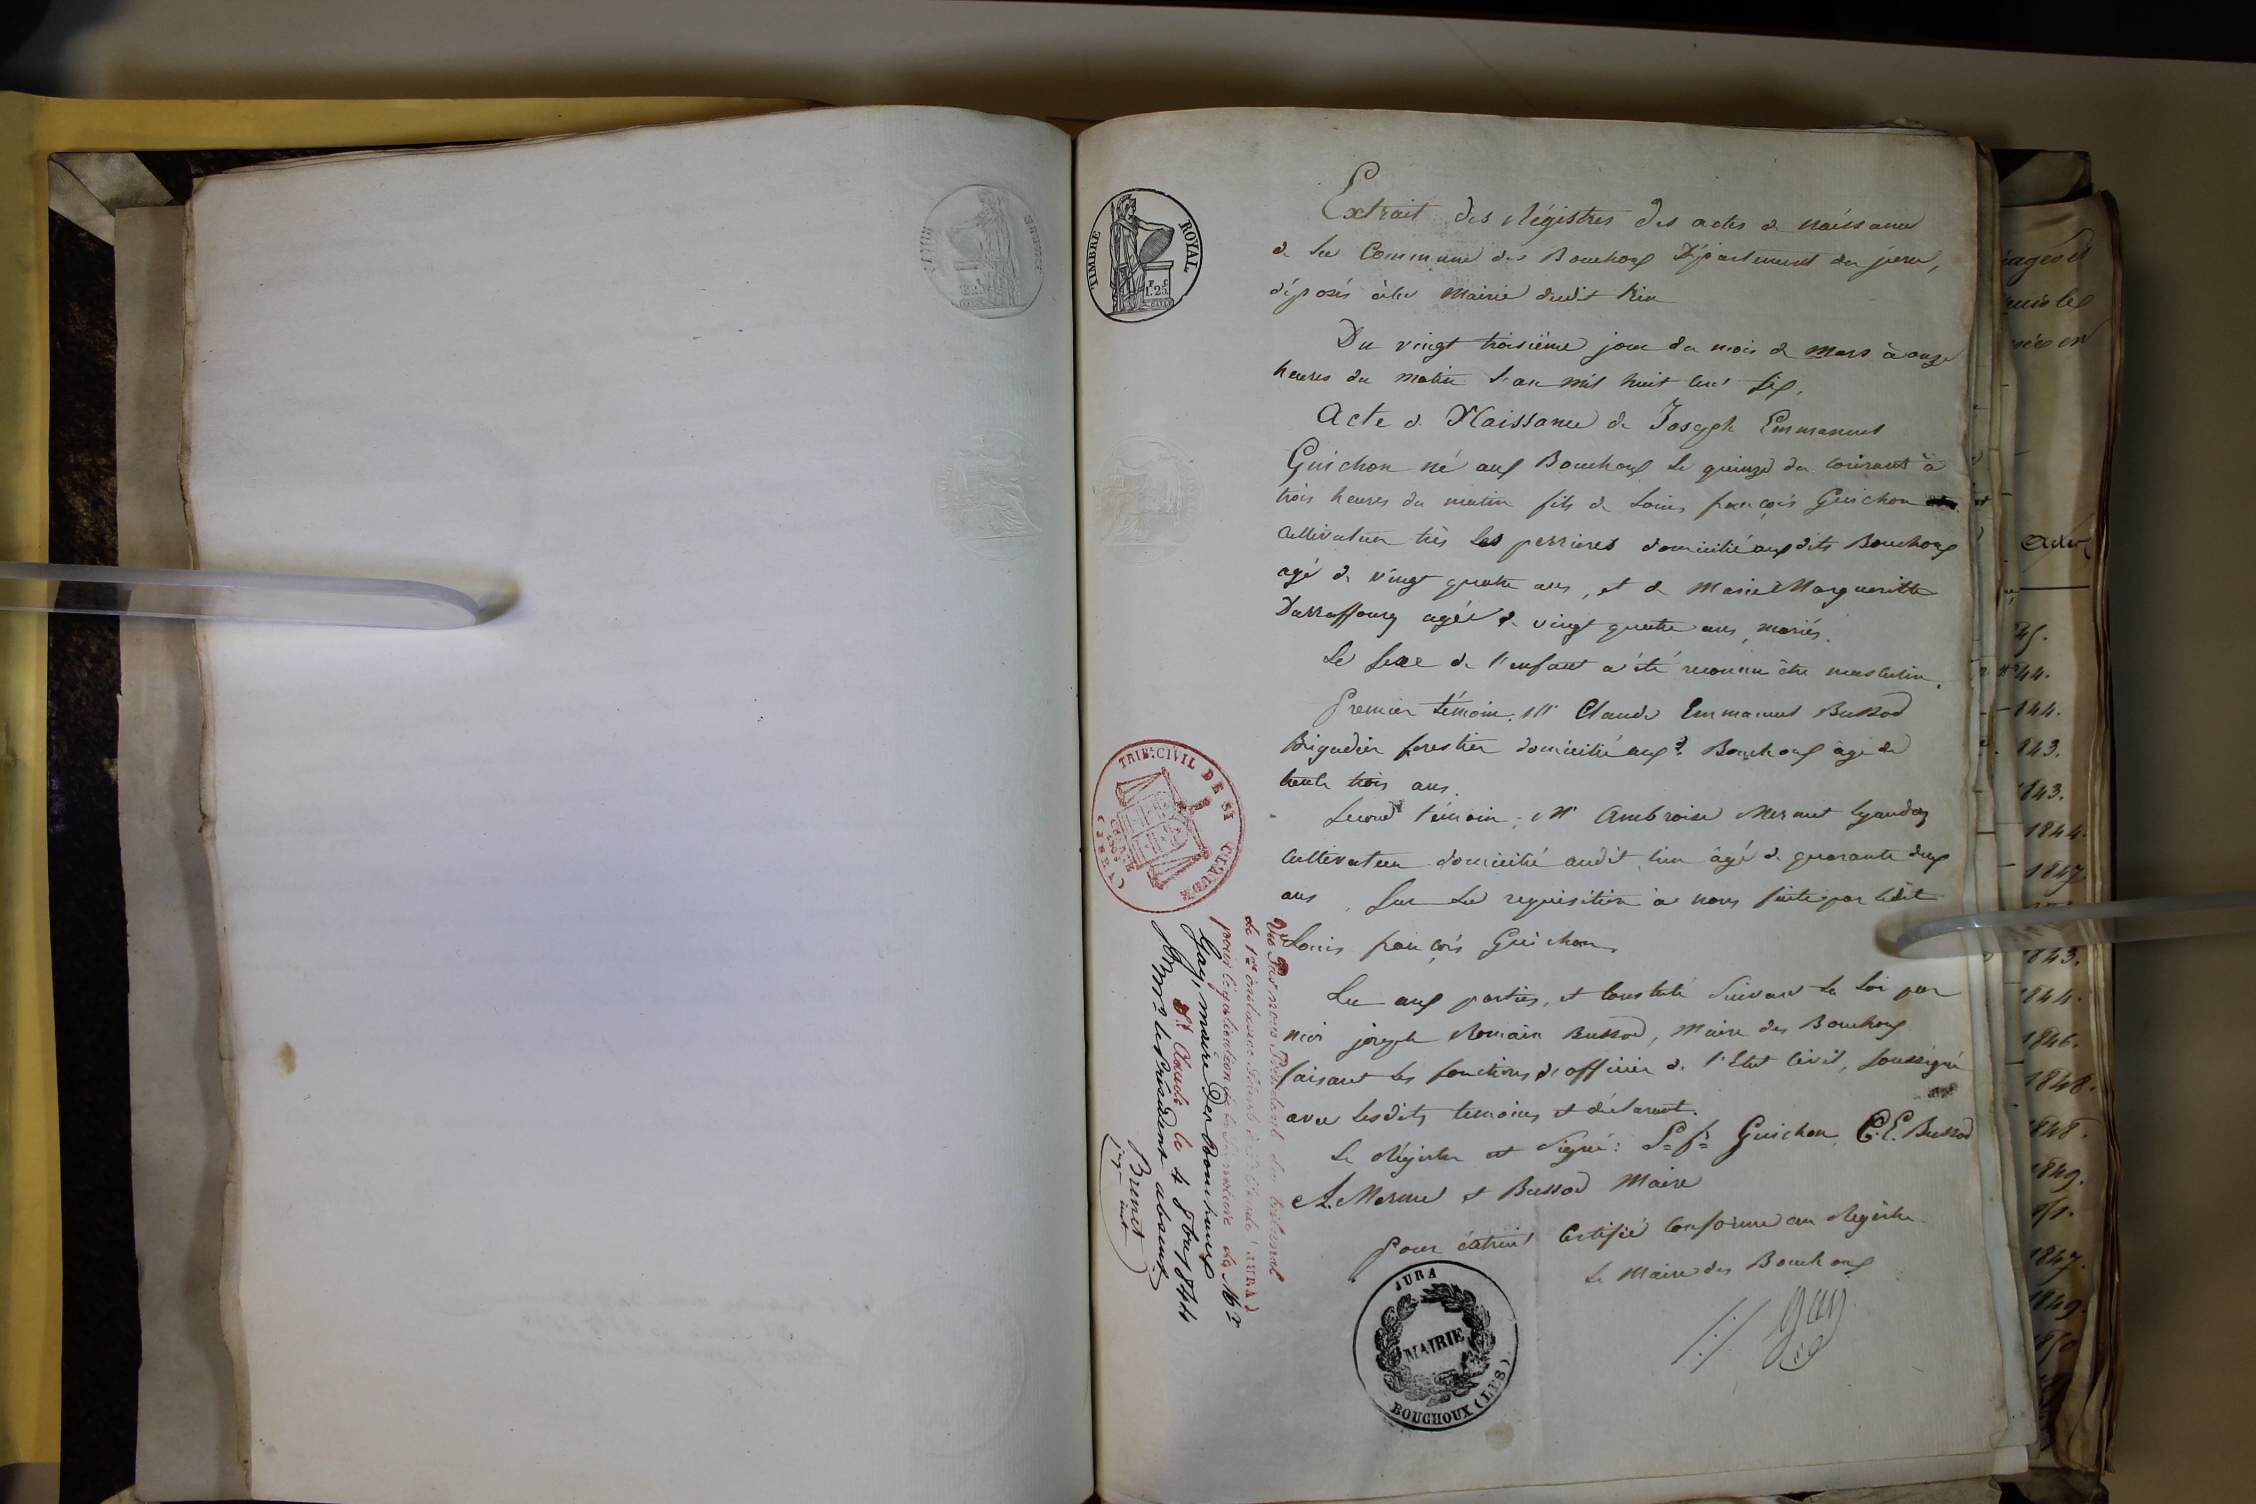 TIMBRE ROYAL
1 F. 25 C.
Extrait des Régistres des actes de naissance
de la Commune des Bouchoux Département du jura,
déposés à la Mairie dudit lieu
Du vingt troisième jour du mois de mars à onze
heures du matin l'an mil huit cent six.
Acte de Naissance de Joseph Emmanuel
Guichon né aux Bouchoux le quinze du courant à
trois heures du matin fils de Louis françois Guichon
Cultivateur les perrieres domicilié aux dits Bouchoux
agé de vingt quatre ans, et de Marie Margueritte
Darraffourg agée de vingt quatre ans, mariés.
Le sexe de l'enfant a été reconnu être masculin.
Premier témoin, Mr Claude Emmanuel Bussod
Brigadier forestier domicilié auxd. Bouchoux âgé de
trente trois ans.
Second témoin, Mr Ambroise Mermet
Cultivateur domicilié audit lieu âgé de quarante deux
ans, Sur la requisition à nous faite par ledit
Louis françois Guichon
Lu aux parties, et Constaté Suivant la Loi par
moi joseph Romain Bussod, Maire des Bouchoux
faisant les fonctions d'officier de l'Etat Civil, Soussigné
avec lesdits temoins et déclarant.
Le Régistre est Signé: L. f. Guichon, C. E. Bussod
A. Mermet et Bussod Maire
Pour extrait Certifié Conforme au Registre
Le Maire des Bouchoux
Gay
JURA
MAIRIE
BOUCHOUX (LES)
TRIB. CIVIL DE ST CLAUDE
(JURA)
Vu Par nous Président du tribunal
de 1re instance séant à St Claude (JURA)
pour légalisation de la Signature de Mr
Gay, maire des Bouchoux
St Claude le 4 8bre 1844
Pr Mr le Président absent,
Brenet